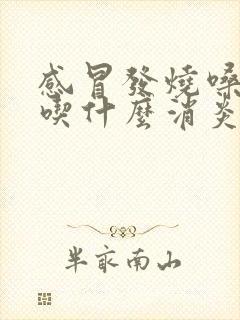 感冒發燒嗓
喫什麼消炎
半畝南山